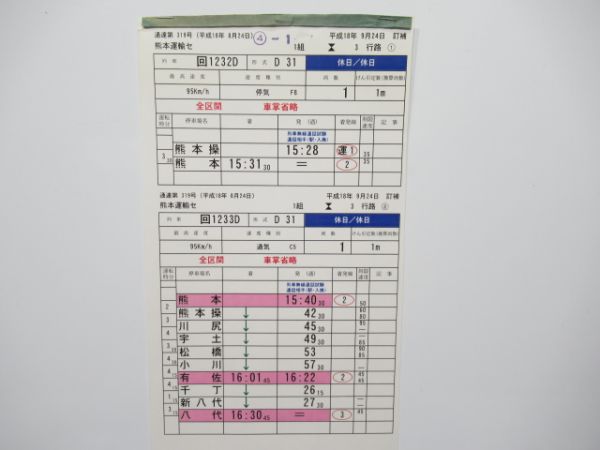 通達第 319号 (平成18年 8月24日) ④-1 平成18年 9月24日 訂補
熊本運輸セ 1組 3 行路 ①
列車 回1232D 形式 D 31 休日/休日
最高速度 速度種別 両数 けん引定数(換算両数)
95Km/h 停気 F8 1 1m
全区間 車掌省略
運転時分 停車場名 着 発(通) 着発線 制限速度 記事
列車無線通話試験
通話相手(駅・入換)
熊本操 15:28 運1 35
3 30 熊本 15:31 30 = 2 35
通達第 319号 (平成18年 8月24日) 平成18年 9月24日 訂補
熊本運輸セ 1組 3 行路 ②
列車 回1233D 形式 D 31 休日/休日
最高速度 速度種別 両数 けん引定数(換算両数)
95Km/h 通気 C5 1 1m
全区間 車掌省略
運転時分 停車場名 着 発(通) 着発線 制限速度 記事
列車無線通話試験
通話相手(駅・入換)
熊本 15:40 30 2 50
2 熊本操 ↓ 42 30
3 川尻 ↓ 45 30
4 宇土 ↓ 49 30
松橋 ↓ 53
小川 ↓ 57 30
有佐 16:01 45 16:22 2 45
千丁 ↓ 26 15
新八代 ↓ 27 30
八代 16:30 45 = 3